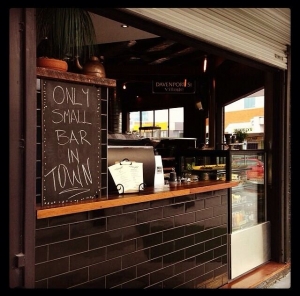 ONLY
SMALL
BAR
IN
TOWN
DAVENPORT'S